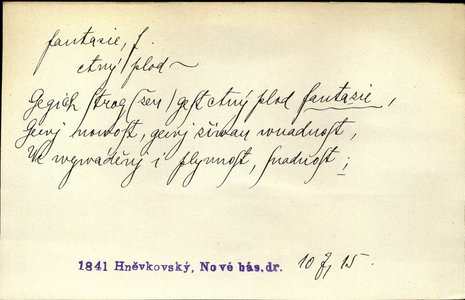 fantasie, f.
ctný plod ~
Gegich strog (žen) gest ctný plod fantasie,
Gewj nowost, gewj šiwau wnadnost,
W wywáděnj i plynnost, snadnost;
1841 Hněvkovský, Nové bás. dr. 10 f, 15.